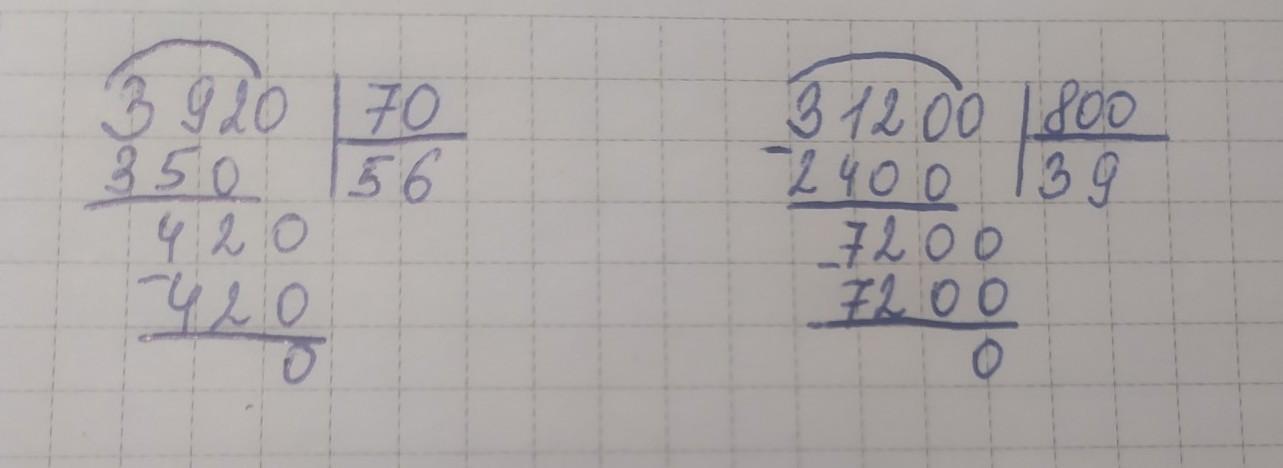 3920 | 70
350 | 56
420
-420
0
31200 | 800
-2400 | 39
7200
-7200
0